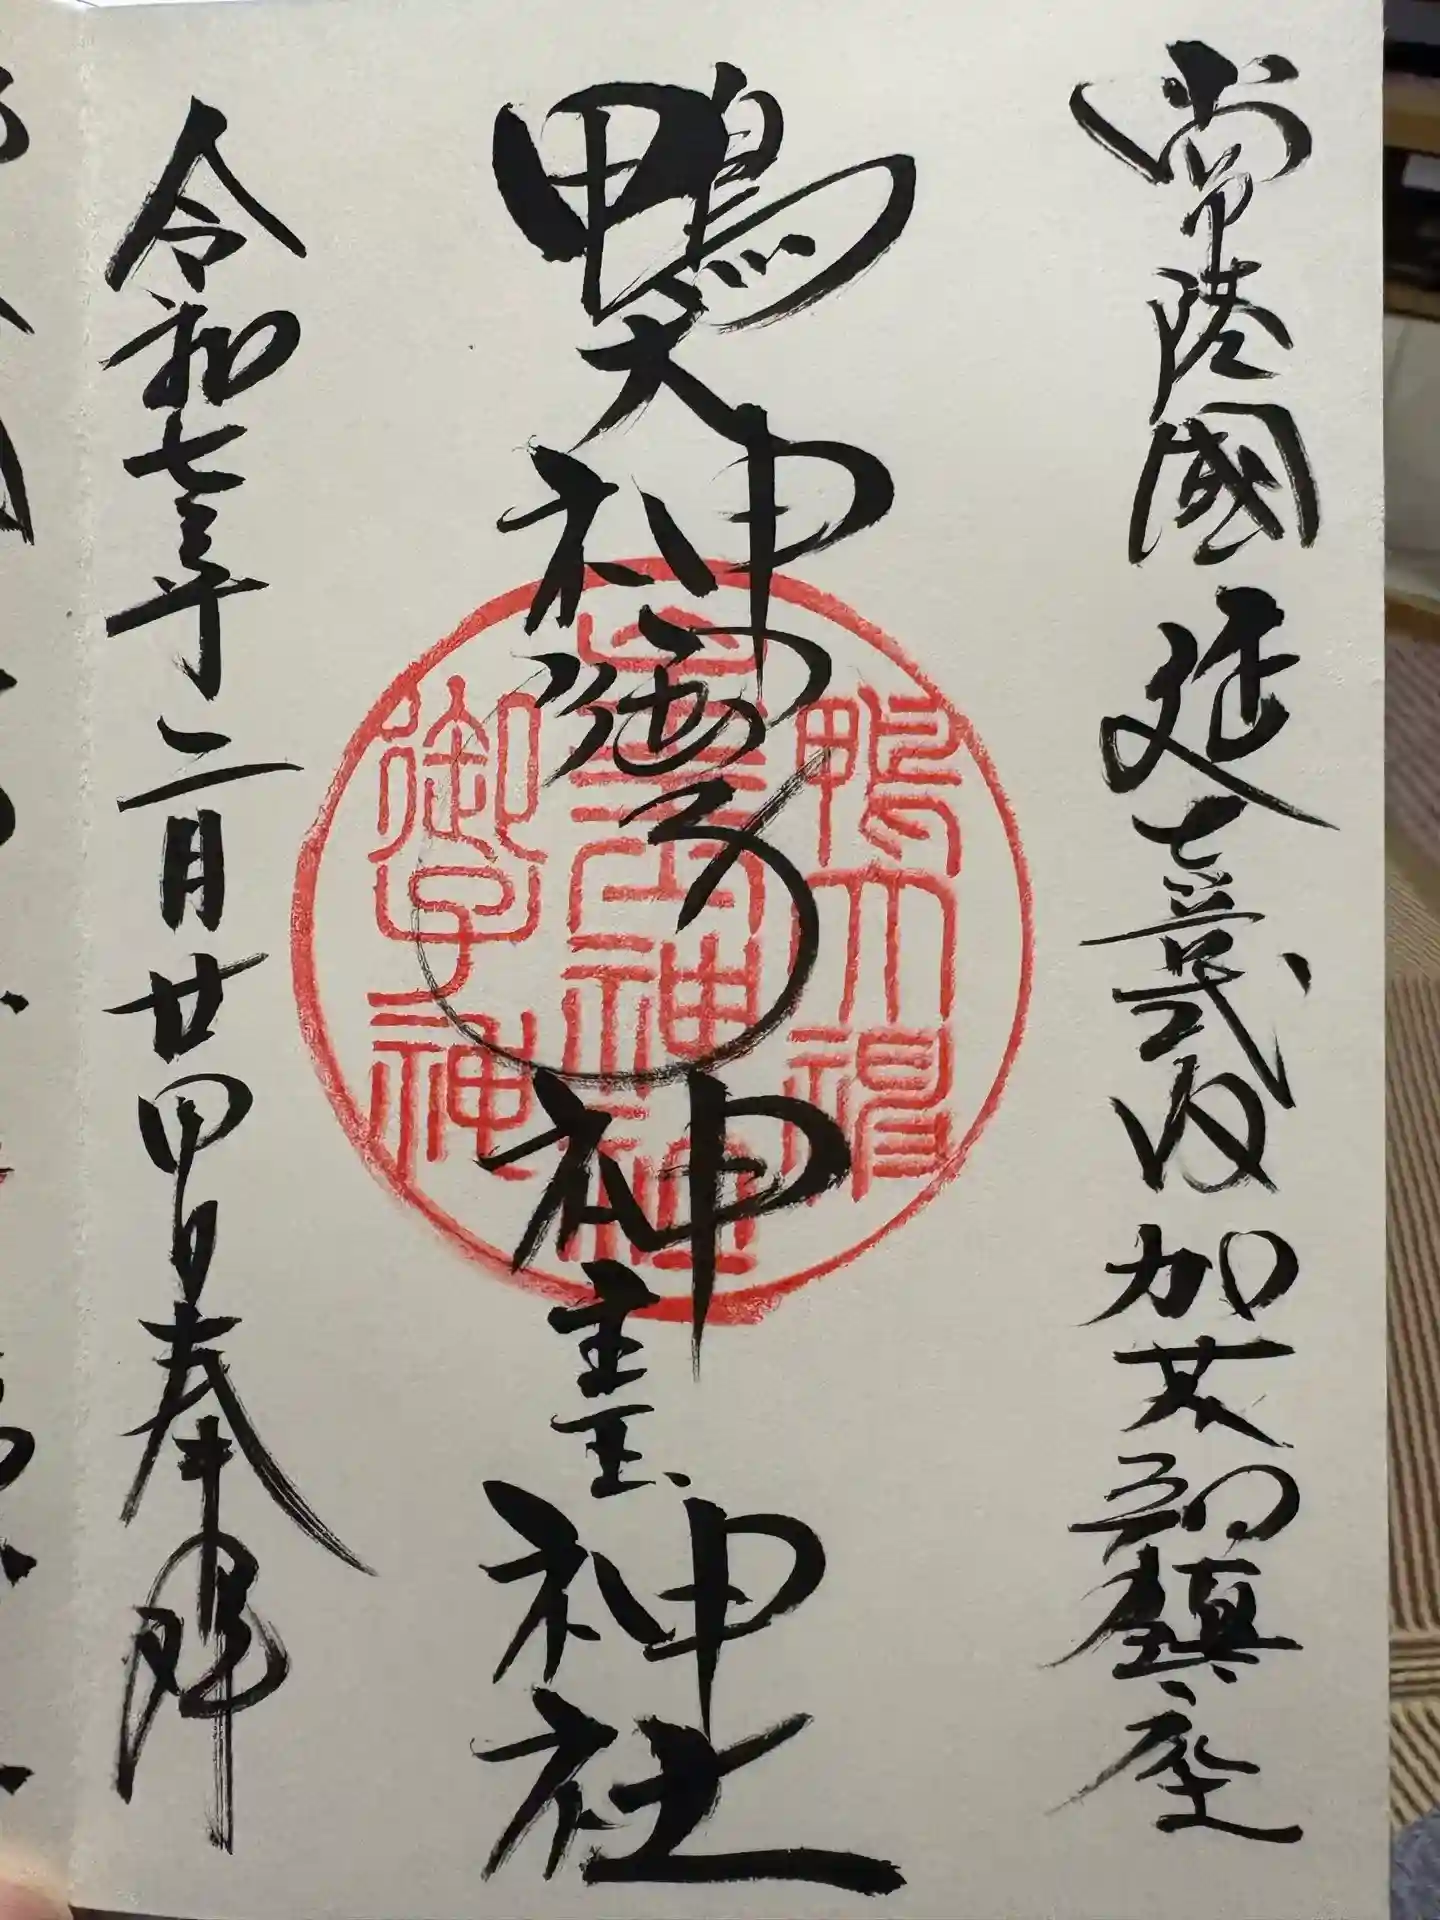 常陸國 延喜式内 加茂部鎮座
鴨大神御子神主玉神社
令和七年二月廿四日奉拝
鴨大神
主玉神社
御子神